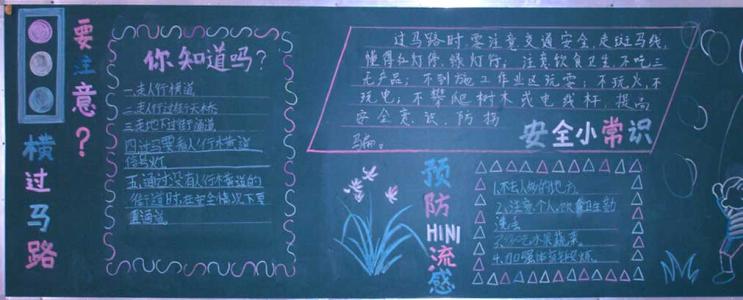 要注意?
横过马路
你知道吗?
一.走人行横道
二.走人行过街天桥
三.走地下过街通道
四.过马路要看人行横道
信号灯
五.通过没有人行横道的
街道时,在安全情况下要
直通过
过马路时,要注意交通安全,走斑马线,
懂得红灯停、绿灯行;注意饮食卫生,不吃三
无产品;不到施工作业区玩耍;不玩火,不
玩电;不攀爬树木或电线杆,提高
安全意识,防拐
骗。
安全小常识
预防H1N1流感
1.不去人多的地方
2.注意个人饮食卫生勤
洗手
3.多吃水果蔬菜
4.加强体育锻炼